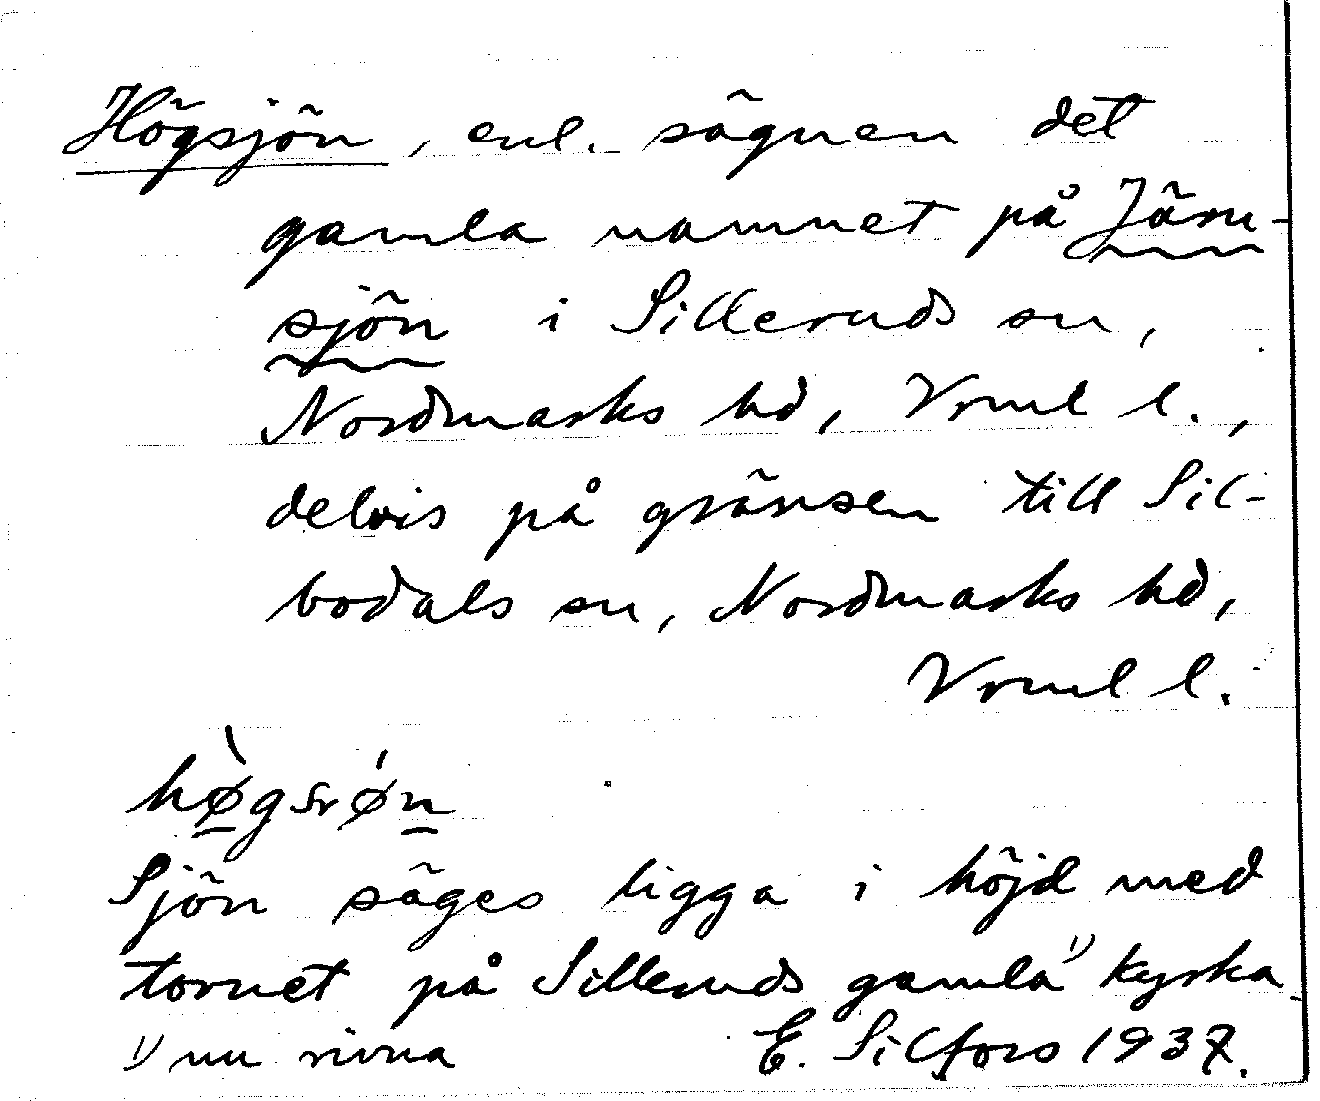 Högsjön, enl. sägnen det
gamla namnet på Järn-
sjön i Silleruds sn,
Nordmarks hd, Vrml l.,
delvis på gränsen till Sil-
bodals sn, Nordmarks hd,
Vrml l.
Sjön säges ligga i höjd med
tornet på Silleruds gamla¹⁾ kyrka
¹⁾ nu rivna E. Silfors 1937.